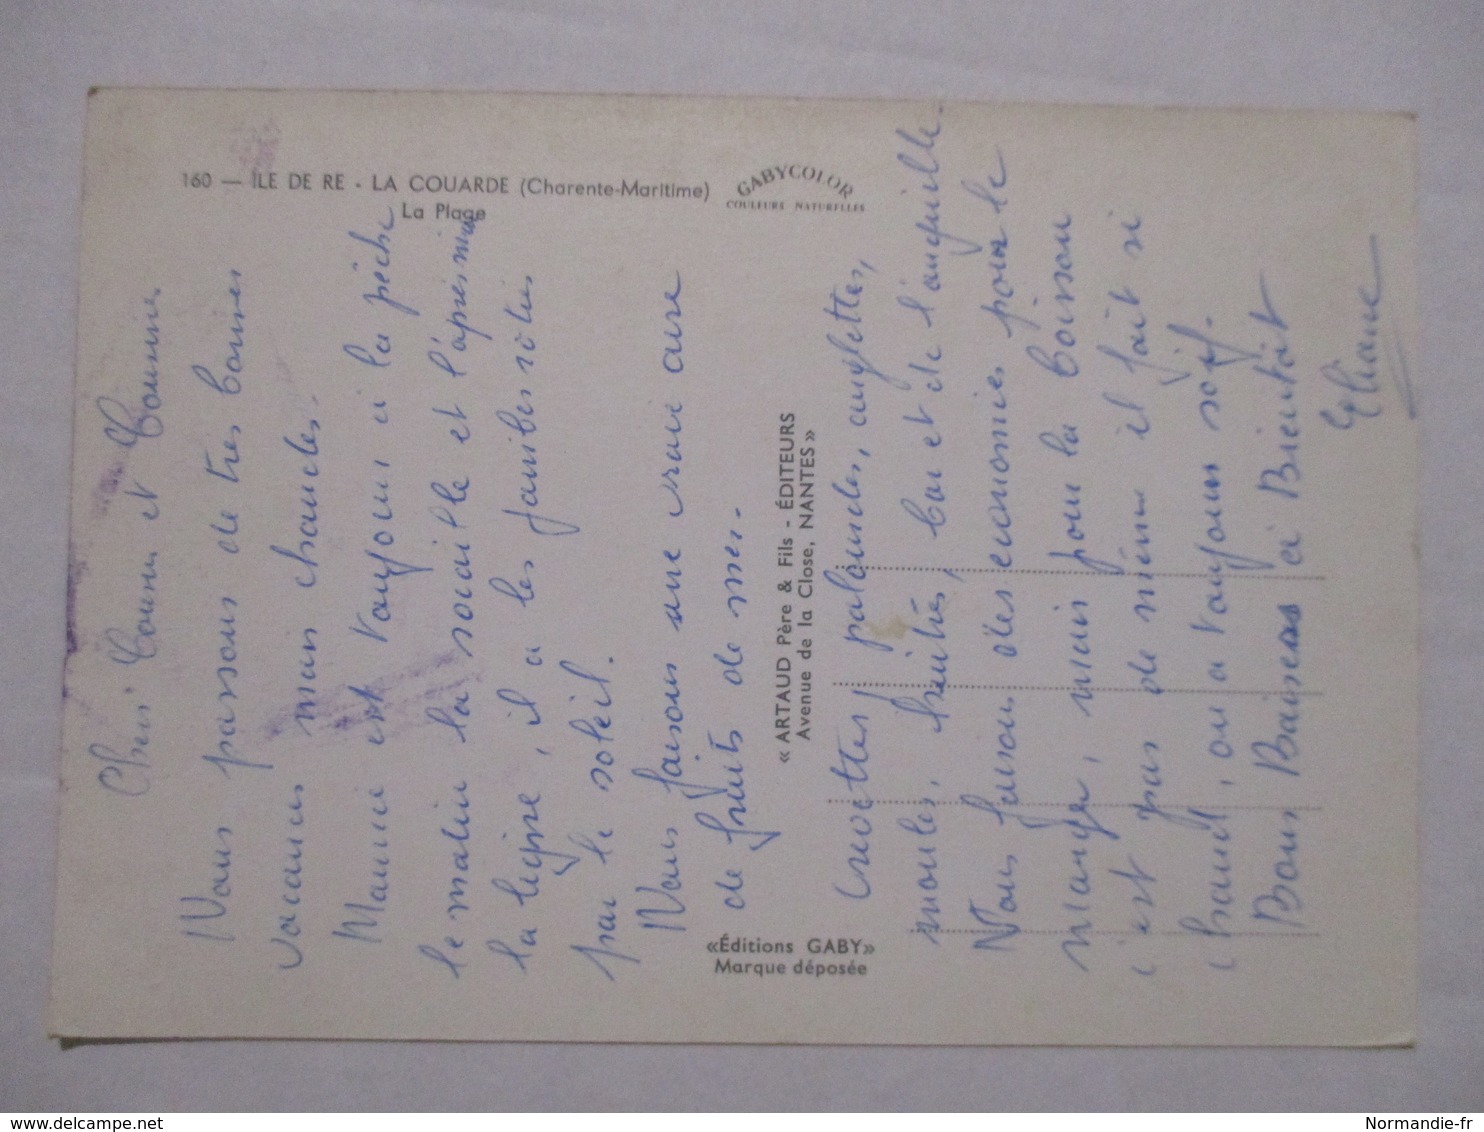 160 — ILE DE RE - LA COUARDE (Charente-Maritime)
La Plage
GABYCOLOR
COULEURS NATURELLES
«Éditions GABY»
Marque déposée
« ARTAUD Père & Fils - ÉDITEURS
Avenue de la Close, NANTES »
Chers Cousin et Cousine,
Nous passons de tres bonnes
vacances mais chaudes.
est toujours à la pêche
le matin la rocaille et l'après midi
la ligne, il a les jambes roties
par le soleil.
Nous faisons une vraie cure
de fruits de mer.
Crevettes palourdes, anglettes,
moules, huitres, bar et de l'anguille.
Nous faisons des economies pour le
manger, mais pour la boisson
c'est pas de même il fait si
chaud, on a toujours soif.
Bons Baisers à Bientôt
Eliane
Normandie-fr